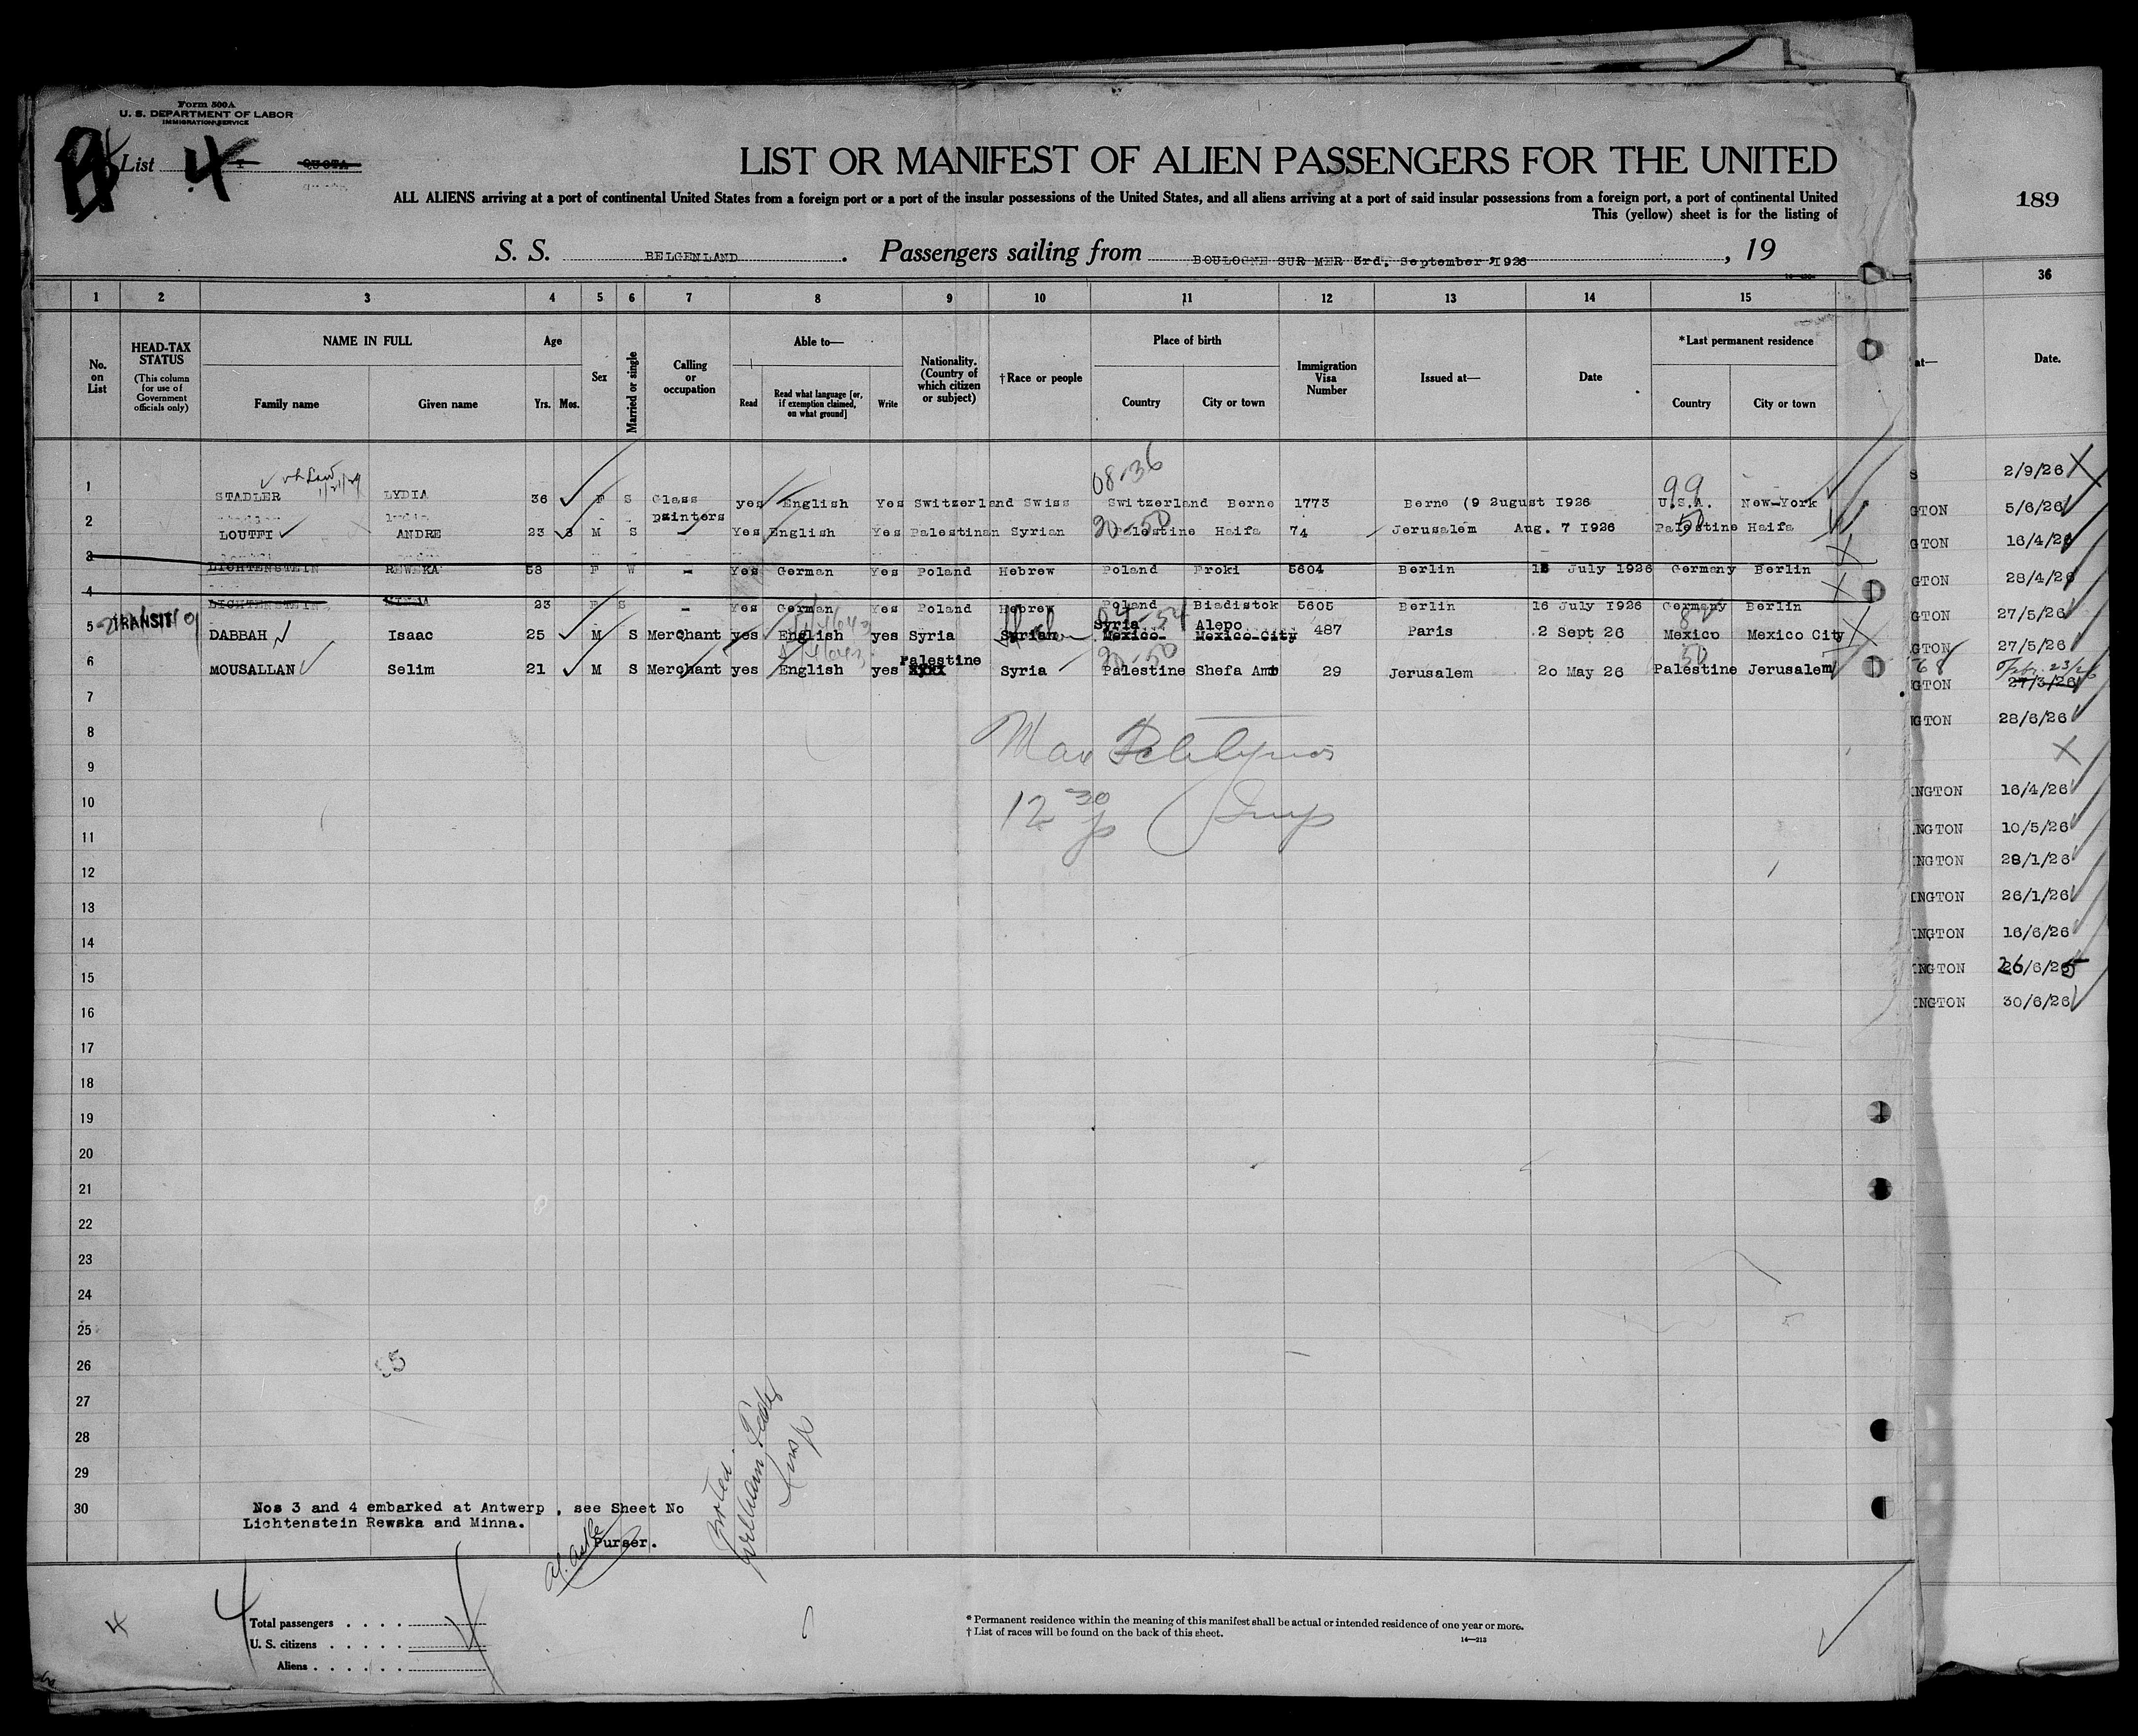 Form 500A
U. S. DEPARTMENT OF LABOR
IMMIGRATION SERVICE
List 4 I QUOTA
LIST OR MANIFEST OF ALIEN PASSENGERS FOR THE UNITED
ALL ALIENS arriving at a port of continental United States from a foreign port or a port of the insular possessions of the United States, and all aliens arriving at a port of said insular possessions from a foreign port, a port of continental United
This (yellow) sheet is for the listing of
189
S. S. BELGENLAND. Passengers sailing from BOULOGNE SUR MER 3rd. September 1926, 19
1 2 3 4 5 6 7 8 9 10 11 12 13 14 15 36
No. on List
HEAD-TAX STATUS
(This column for use of Government officials only)
NAME IN FULL
Family name Given name
Age
Yrs. Mos.
Sex
Married or single
Calling or occupation
Able to—
Read
Read what language [or, if exemption claimed, on what ground]
Write
Nationality. (Country of which citizen or subject)
†Race or people
Place of birth
Country City or town
Immigration Visa Number
Issued at—
Date
*Last permanent residence
Country City or town
at— Date.
08-36 99
1 STADLER LYDIA 36 F S Glass painters yes English Yes Switzerland Swiss Switzerland Berne 1773 Berne (9 2ugust 1926 U.S.A. New-York
20-50 50
2 LOUTFI ANDRE 23 8 M S Yes English Yes Palestinan Syrian Palestine Haifa 74 Jerusalem Aug. 7 1926 Palestine Haifa
3 LICHTENSTEIN REWSKA 58 F W - Yes German Yes Poland Hebrew Poland Froki 5604 Berlin 15 July 1926 Germany Berlin
4 LICHTENSTEIN 23 F S - Yes German Yes Poland Hebrew Poland Biadistok 5605 Berlin 16 July 1926 Germany Berlin
TRANSIT
5 DABBAH Isaac 25 M S Merchant yes English yes Syria Syrian Syria Alepo Mexico Mexico-City 487 Paris 2 Sept 26 Mexico Mexico City
20-50 50
6 MOUSALLAN Selim 21 M S Merchant yes English yes Palestine Syria Palestine Shefa Amt 29 Jerusalem 20 May 26 Palestine Jerusalem
7
8
9
10
11
12
13
14
15
16
17
18
19
20
21
22
23
24
25
26
27
28
29
30
12 30
2/9/26
GTON 5/6/26
GTON 16/4/26
GTON 28/4/26
GTON 27/5/26
GTON 27/5/26
GTON 27/3/26
GTON 28/6/26
NGTON 16/4/26
NGTON 10/5/26
NGTON 28/1/26
NGTON 26/1/26
NGTON 16/6/26
NGTON 26/6/26
NGTON 30/6/26
Nos 3 and 4 embarked at Antwerp , see Sheet No
Lichtenstein Rewska and Minna.
Purser.
4
4
Total passengers
U. S. citizens
Aliens
* Permanent residence within the meaning of this manifest shall be actual or intended residence of one year or more.
† List of races will be found on the back of this sheet.
14—213